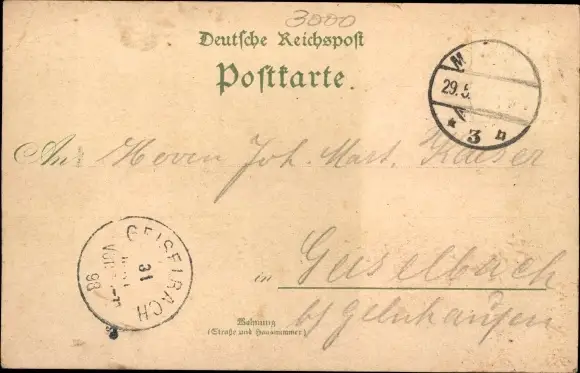 3000
Deutsche Reichspost
Postkarte.
M
29.5.
* 3 n
An Herren Joh. Mart. Kaiser
GEISELBACH
31
98
in Geiselbach
b/ Gelnhausen
Wohnung
(Straße und Hausnummer)